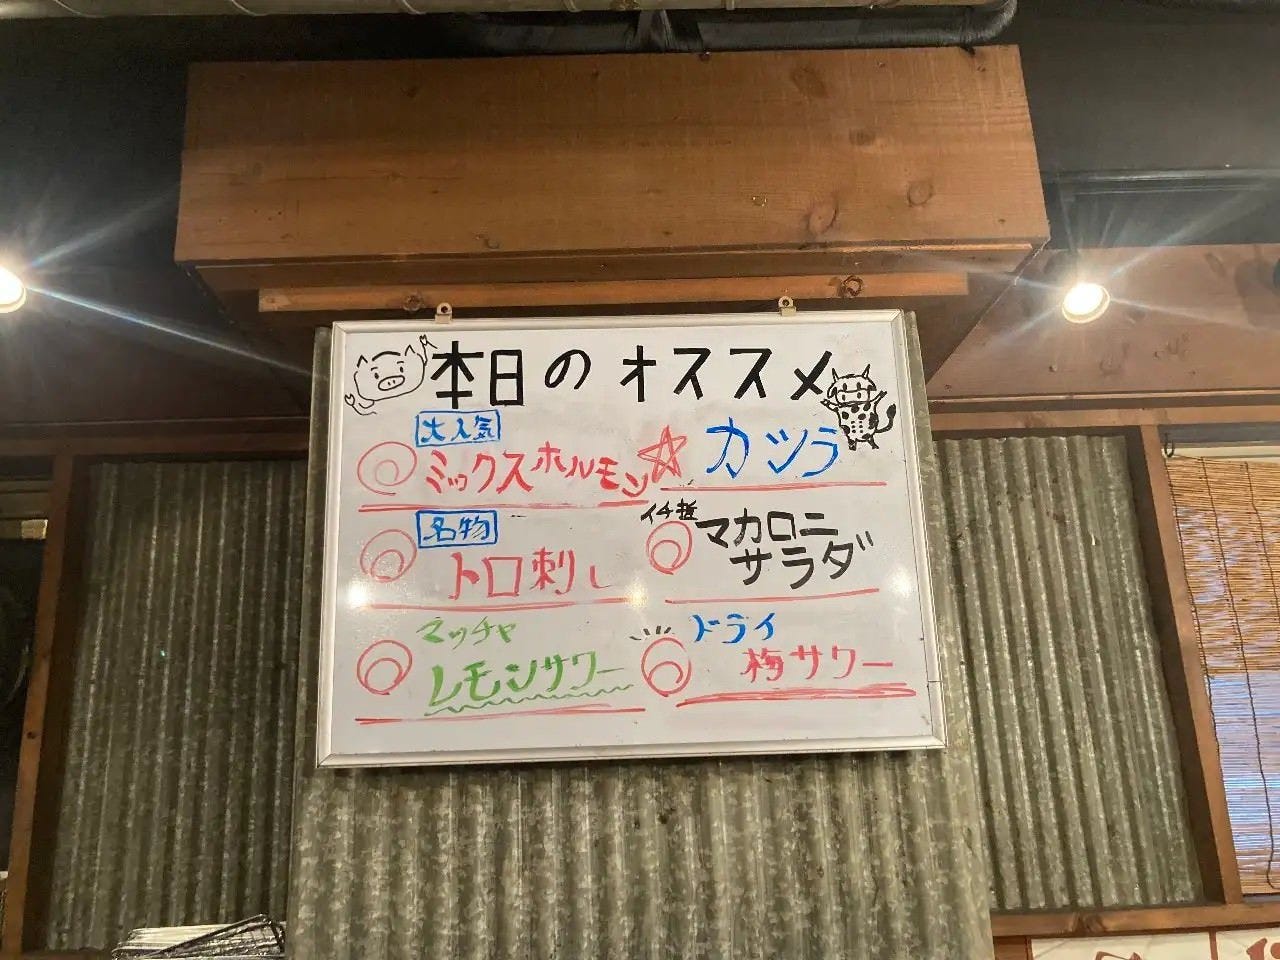 本日のオススメ
大人気
ミックスホルモン
名物
トロ刺し
マッチャ
レモンサワー
カツラ
イチ押
マカロニ
サラダ
ドライ
梅サワー